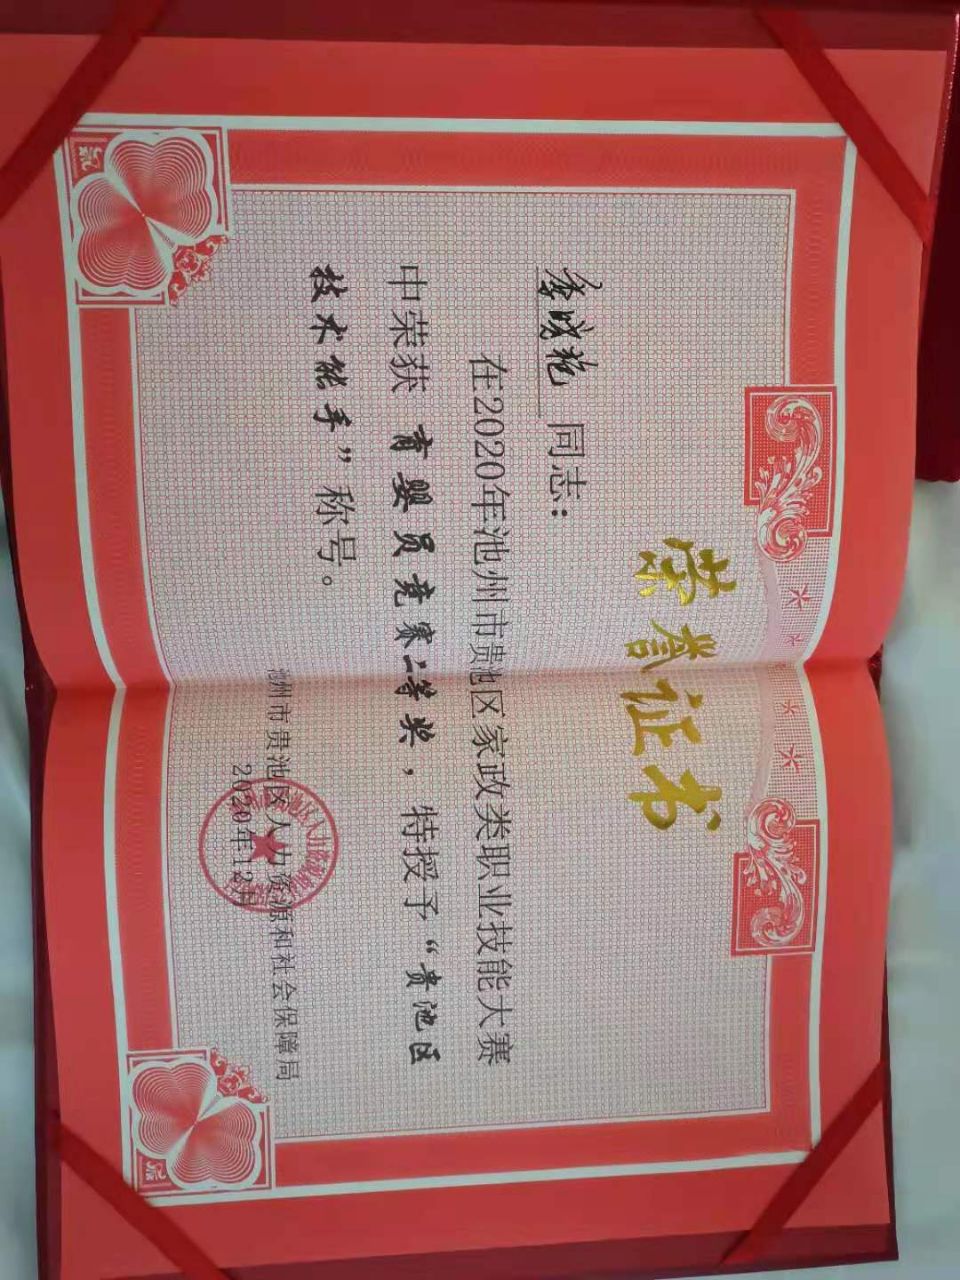 荣誉证书
李晓艳 同志：
在2020年池州市贵池区家政类职业技能大赛
中荣获 育婴员竞赛二等奖，特授予“贵池区
技术能手”称号。
池州市贵池区人力资源和社会保障局
2020年12月